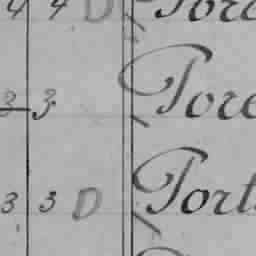 4 4 D Tore
3 3 Tore
3 3 D Tort